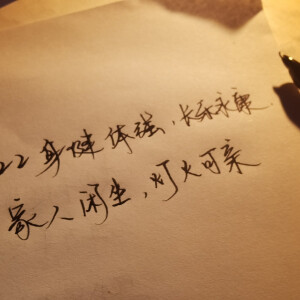 22身体健强，长乐永康
家人闲坐，灯火可亲